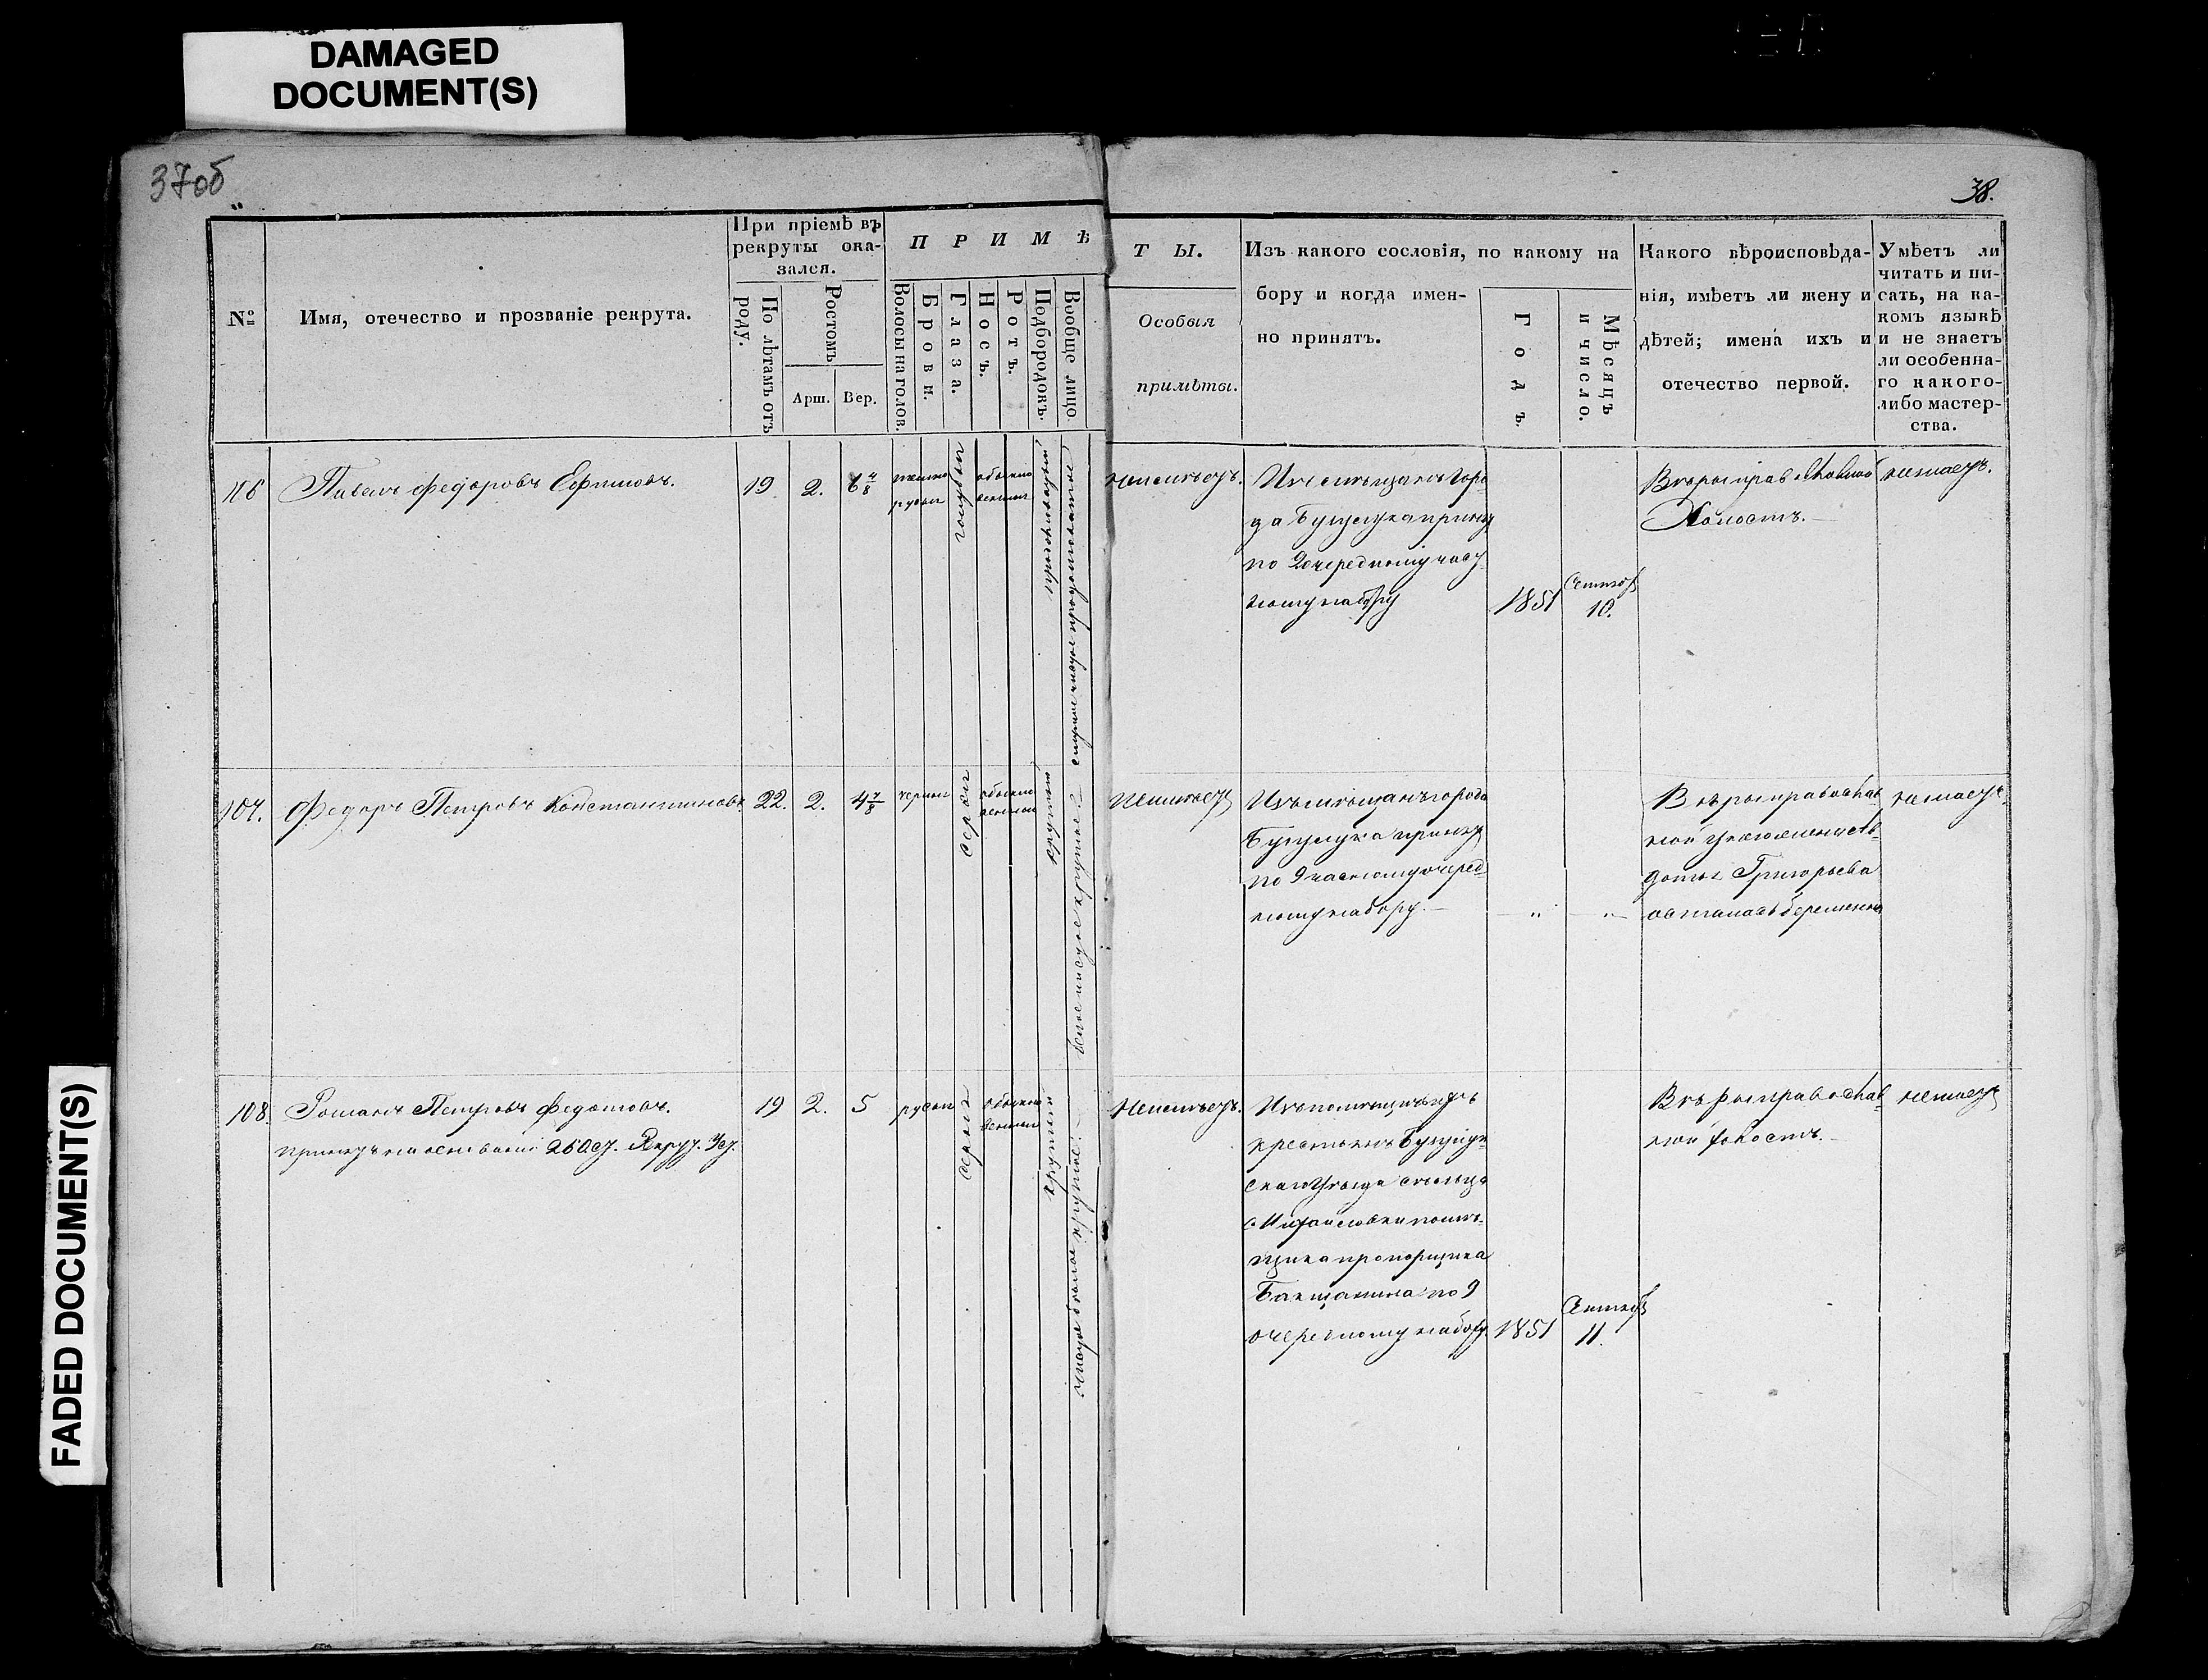 DAMAGED
DOCUMENT(S)
FADED DOCUMENT(S)
37об
38.
№
Имя, отечество и прозваніе рекрута.
При пріемѣ въ
рекруты ока-
зался.
По лѣтамъ отъ
роду.
Ростомъ
Арш.
Вер.
ПРИМѢ
Волосы на голов.
Брови.
Глаза.
Носъ.
Ротъ.
Подбородокъ.
Вообще лицо
ТЫ.
Особыя
примѣты.
Изъ какого сословія, по какому на
бору и когда имен-
но принятъ.
Годъ.
Мѣсяцъ
и число.
Какого вѣроисповѣда-
нія, имѣетъ ли жену и
дѣтей; имена ихъ и
отечество первой.
Умѣетъ ли
читать и пи-
сать, на ка-
комъ языкѣ
и не знаетъ
ли особенна-
го какого-
либо мастер-
ства.
106
Павелъ Федоровъ Ефимовъ.
19
2.
6 4/8
темно
русыи
голубыи
обыкно
венныи
продолговатый
неимѣетъ.
Изъ мѣщанъ Горо
да Бугуруслана принятъ
по 9 очередному
ному набору
1851
Сентяб
10.
Вѣры православной
Холостъ.
незнаетъ.
107.
Федоръ Петровъ Константиновъ
22.
2.
4 7/8
черныи
серыи
обыкно
венныи
круглый
неимѣетъ
Изъ мѣщанъ города
принятъ
по 9 частному очеред-
ному набору.
"
"
Вѣры православ
ной у него жена
Григорьева
осталась беременна
незнаетъ.
108.
Романъ Петровъ Федотовъ.
принятъ на основаніи 260 ст. Рекрут. Уст.
19
2.
5
русыи
серыи
обыкно
венныи
круглый
неимѣетъ.
Изъ помѣщичьихъ
крестьянъ
скаго Уѣзда сельца
Михайловки помѣ-
щика прапорщика
по 9
очередному набору
1851
Сентяб
11.
Вѣры православ
ной холостъ.
незнаетъ